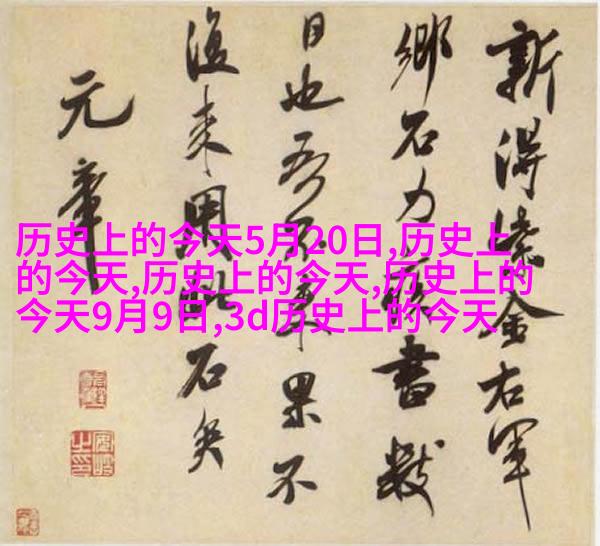 新得紫金右軍
鄉石力疾書數
日也吾不来果不
復来用此石矣
元章
历史上的今天5月20日,历史上
的今天,历史上的今天,历史上的
今天9月9日,3d历史上的今天